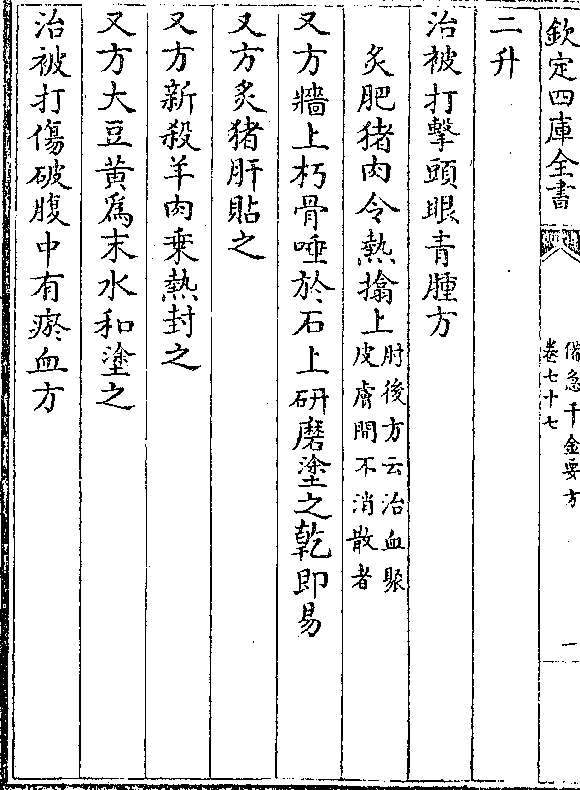 欽定四庫全書
備急千金要方
卷七十七
一
二升
治被打擊頭眼青腫方
炙肥猪肉令熱搨上
肘後方云治血聚
皮膚間不消散者
又方牆上朽骨唾於石上研磨塗之乾即易
又方炙猪肝貼之
又方新殺羊肉乗熱封之
又方大豆黄為末水和塗之
治被打傷破腹中有瘀血方